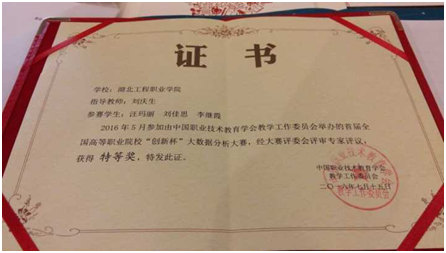 证书
学校：湖北工程职业学院
指导教师：刘庆生
参赛学生：汪玛丽 刘佳思 李继霞
2016年5月参加由中国职业技术教育学会教学工作委员会举办的首届全
国高等职业院校“创新杯”大数据分析大赛，经大赛评委会评审专家评议，
获得 特等奖，特发此证。
中国职业技术教育学会
教学工作委员会
二〇一六年七月十五日
教学工作委员会